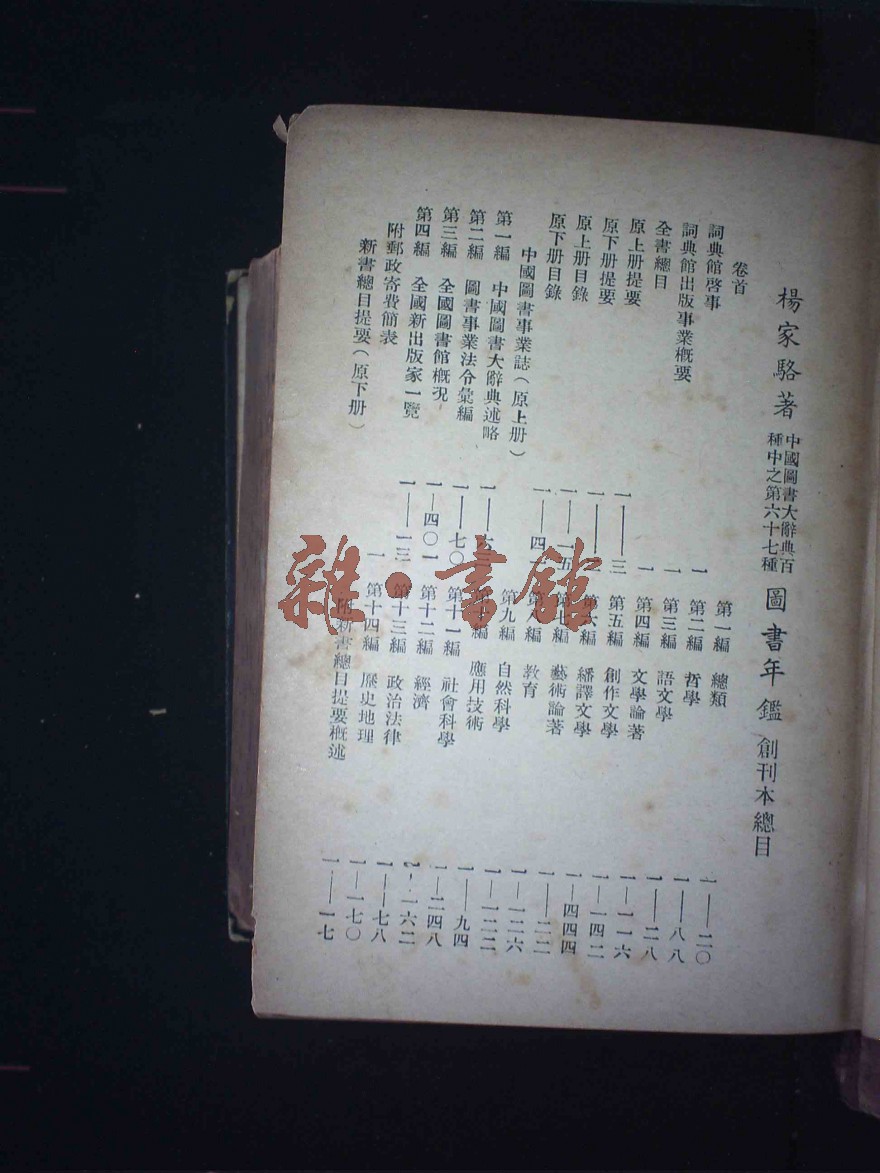 楊家駱著 中國圖書大辭典百
種中之第六十七種 圖書年鑑 創刊本總目
卷首
詞典館啓事 一
詞典館出版事業概要 一
全書總目 一
原上册提要 一——三
原下册提要 一——
原上册目錄 一——一五
原下册目錄 一——四
中國圖書事業誌（原上册）
第一編 中國圖書大辭典述略 一——
第二編 圖書事業法令彙編 一——七〇
第三編 全國圖書館概况 一—四〇一
第四編 全國新出版家一覽 一——一三
附郵政寄費簡表 一
新書總目提要（原下册）
第一編 總類 一——二〇
第二編 哲學 一——八八
第三編 語文學 一——二八
第四編 文學論著 一—一一六
第五編 創作文學 一—一四二
第六編 繙譯文學 一—四四四
第七編 藝術論著 一——二二
第八編 教育 一—一二六
第九編 自然科學 一—一二二
第十編 應用技術 一——九四
第十一編 社會科學 一—二四八
第十二編 經濟 一六二
第十三編 政治法律 一——七八
第十四編 歷史地理 一—一七〇
附新書總目提要概述 一——一七
雜·書館